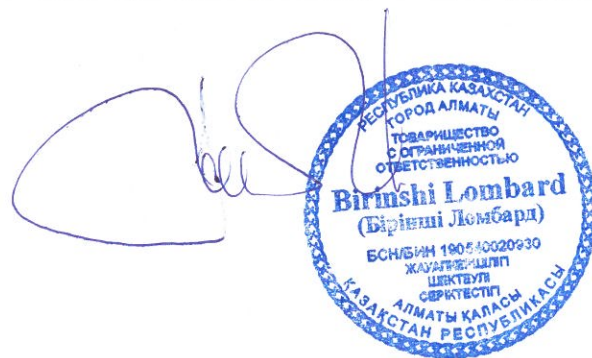 РЕСПУБЛИКА КАЗАХСТАН
ГОРОД АЛМАТЫ
ТОВАРИЩЕСТВО
С ОГРАНИЧЕННОЙ
ОТВЕТСТВЕННОСТЬЮ
Birinshi Lombard
(Бірінші Ломбард)
БСН/БИН 190540020930
ЖАУАПКЕРШІЛІГІ
ШЕКТЕУЛІ
СЕРІКТЕСТІГІ
АЛМАТЫ ҚАЛАСЫ
ҚАЗАҚСТАН РЕСПУБЛИКАСЫ